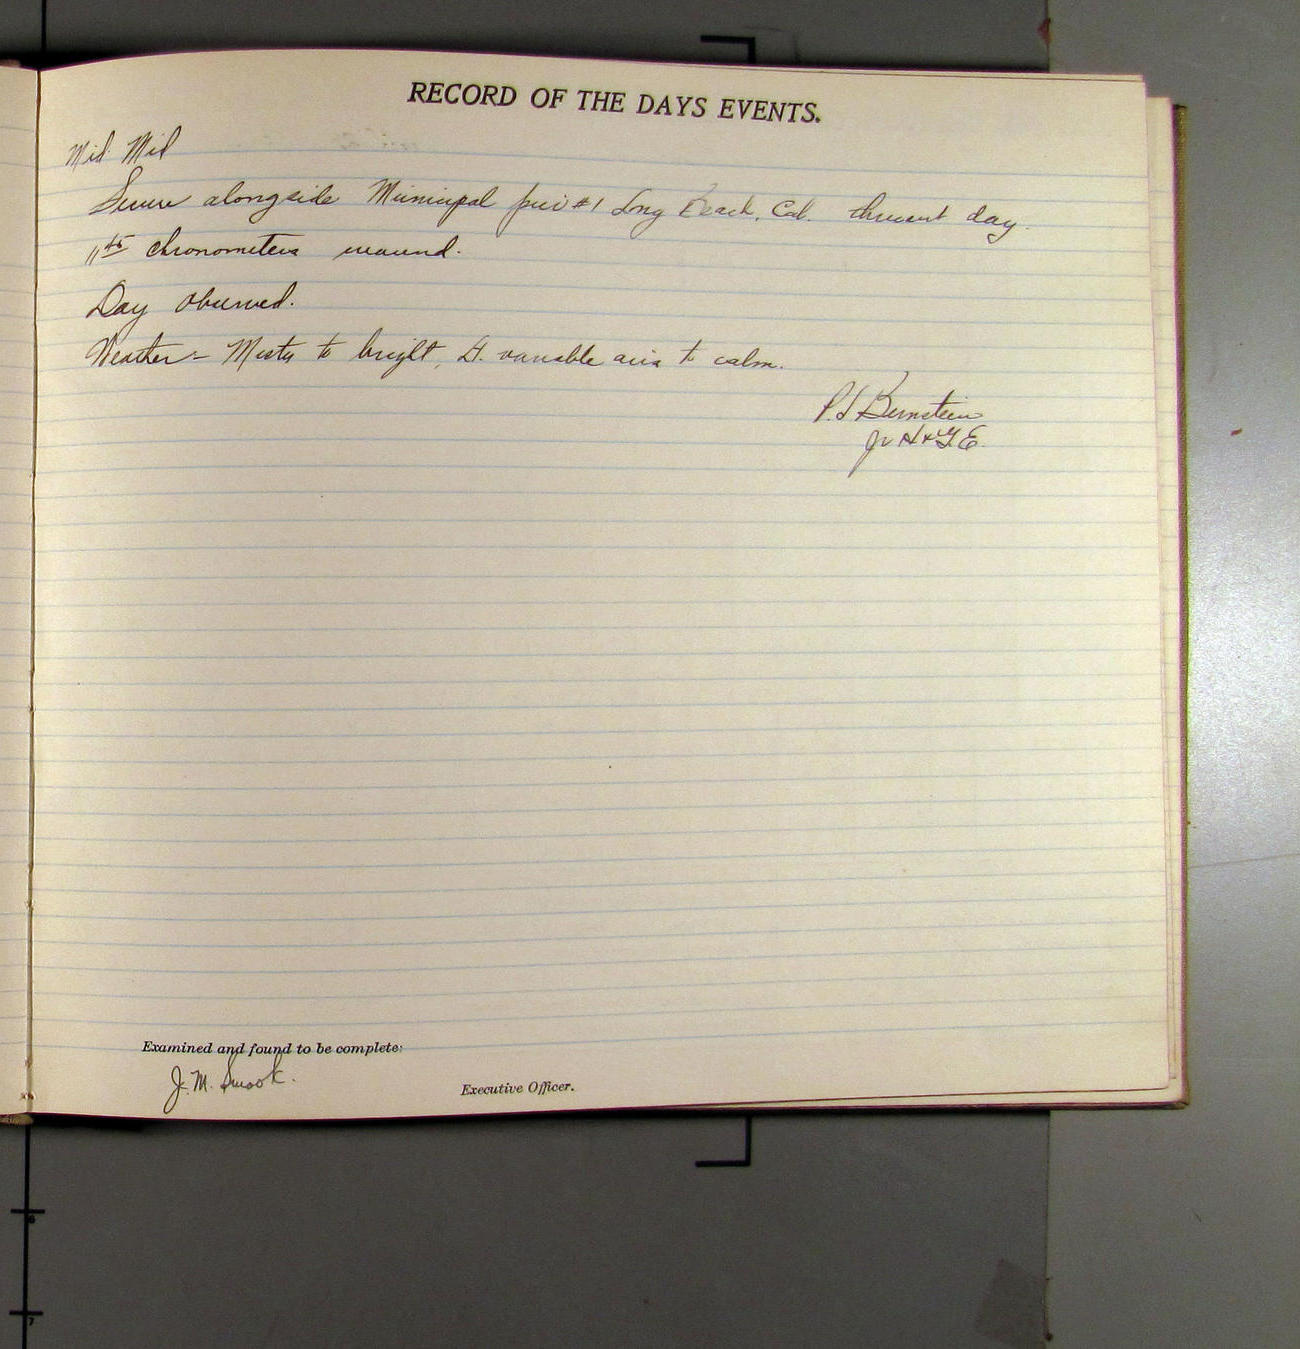 RECORD OF THE DAYS EVENTS.
Mid Mid
Secure alongside Municipal pier #1 Long Beach, Cal. thruout day.
11 45 chronometers wound.
Day observed.
Weather:- Misty to bright, Lt. variable airs to calm.
P.L. Bernstein
Jr H & G E.
Examined and found to be complete:
J. M. Smook.
Executive Officer.
6
7